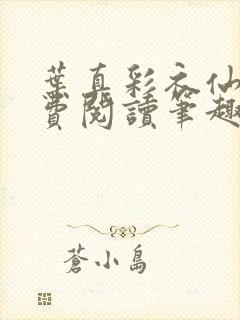 葉真彩衣仙
費閱讀筆趣
蒼小島